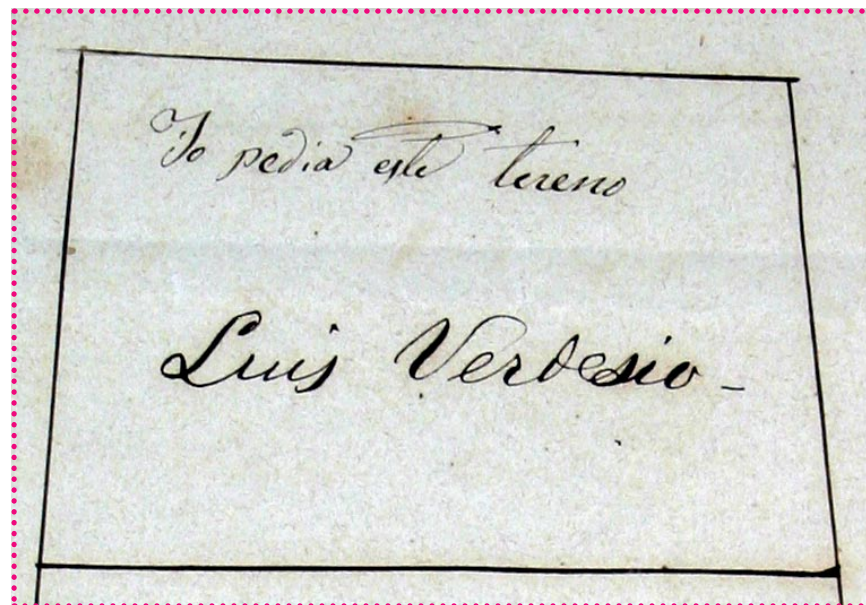 Yo pedia este tereno
Luis Verdesio -